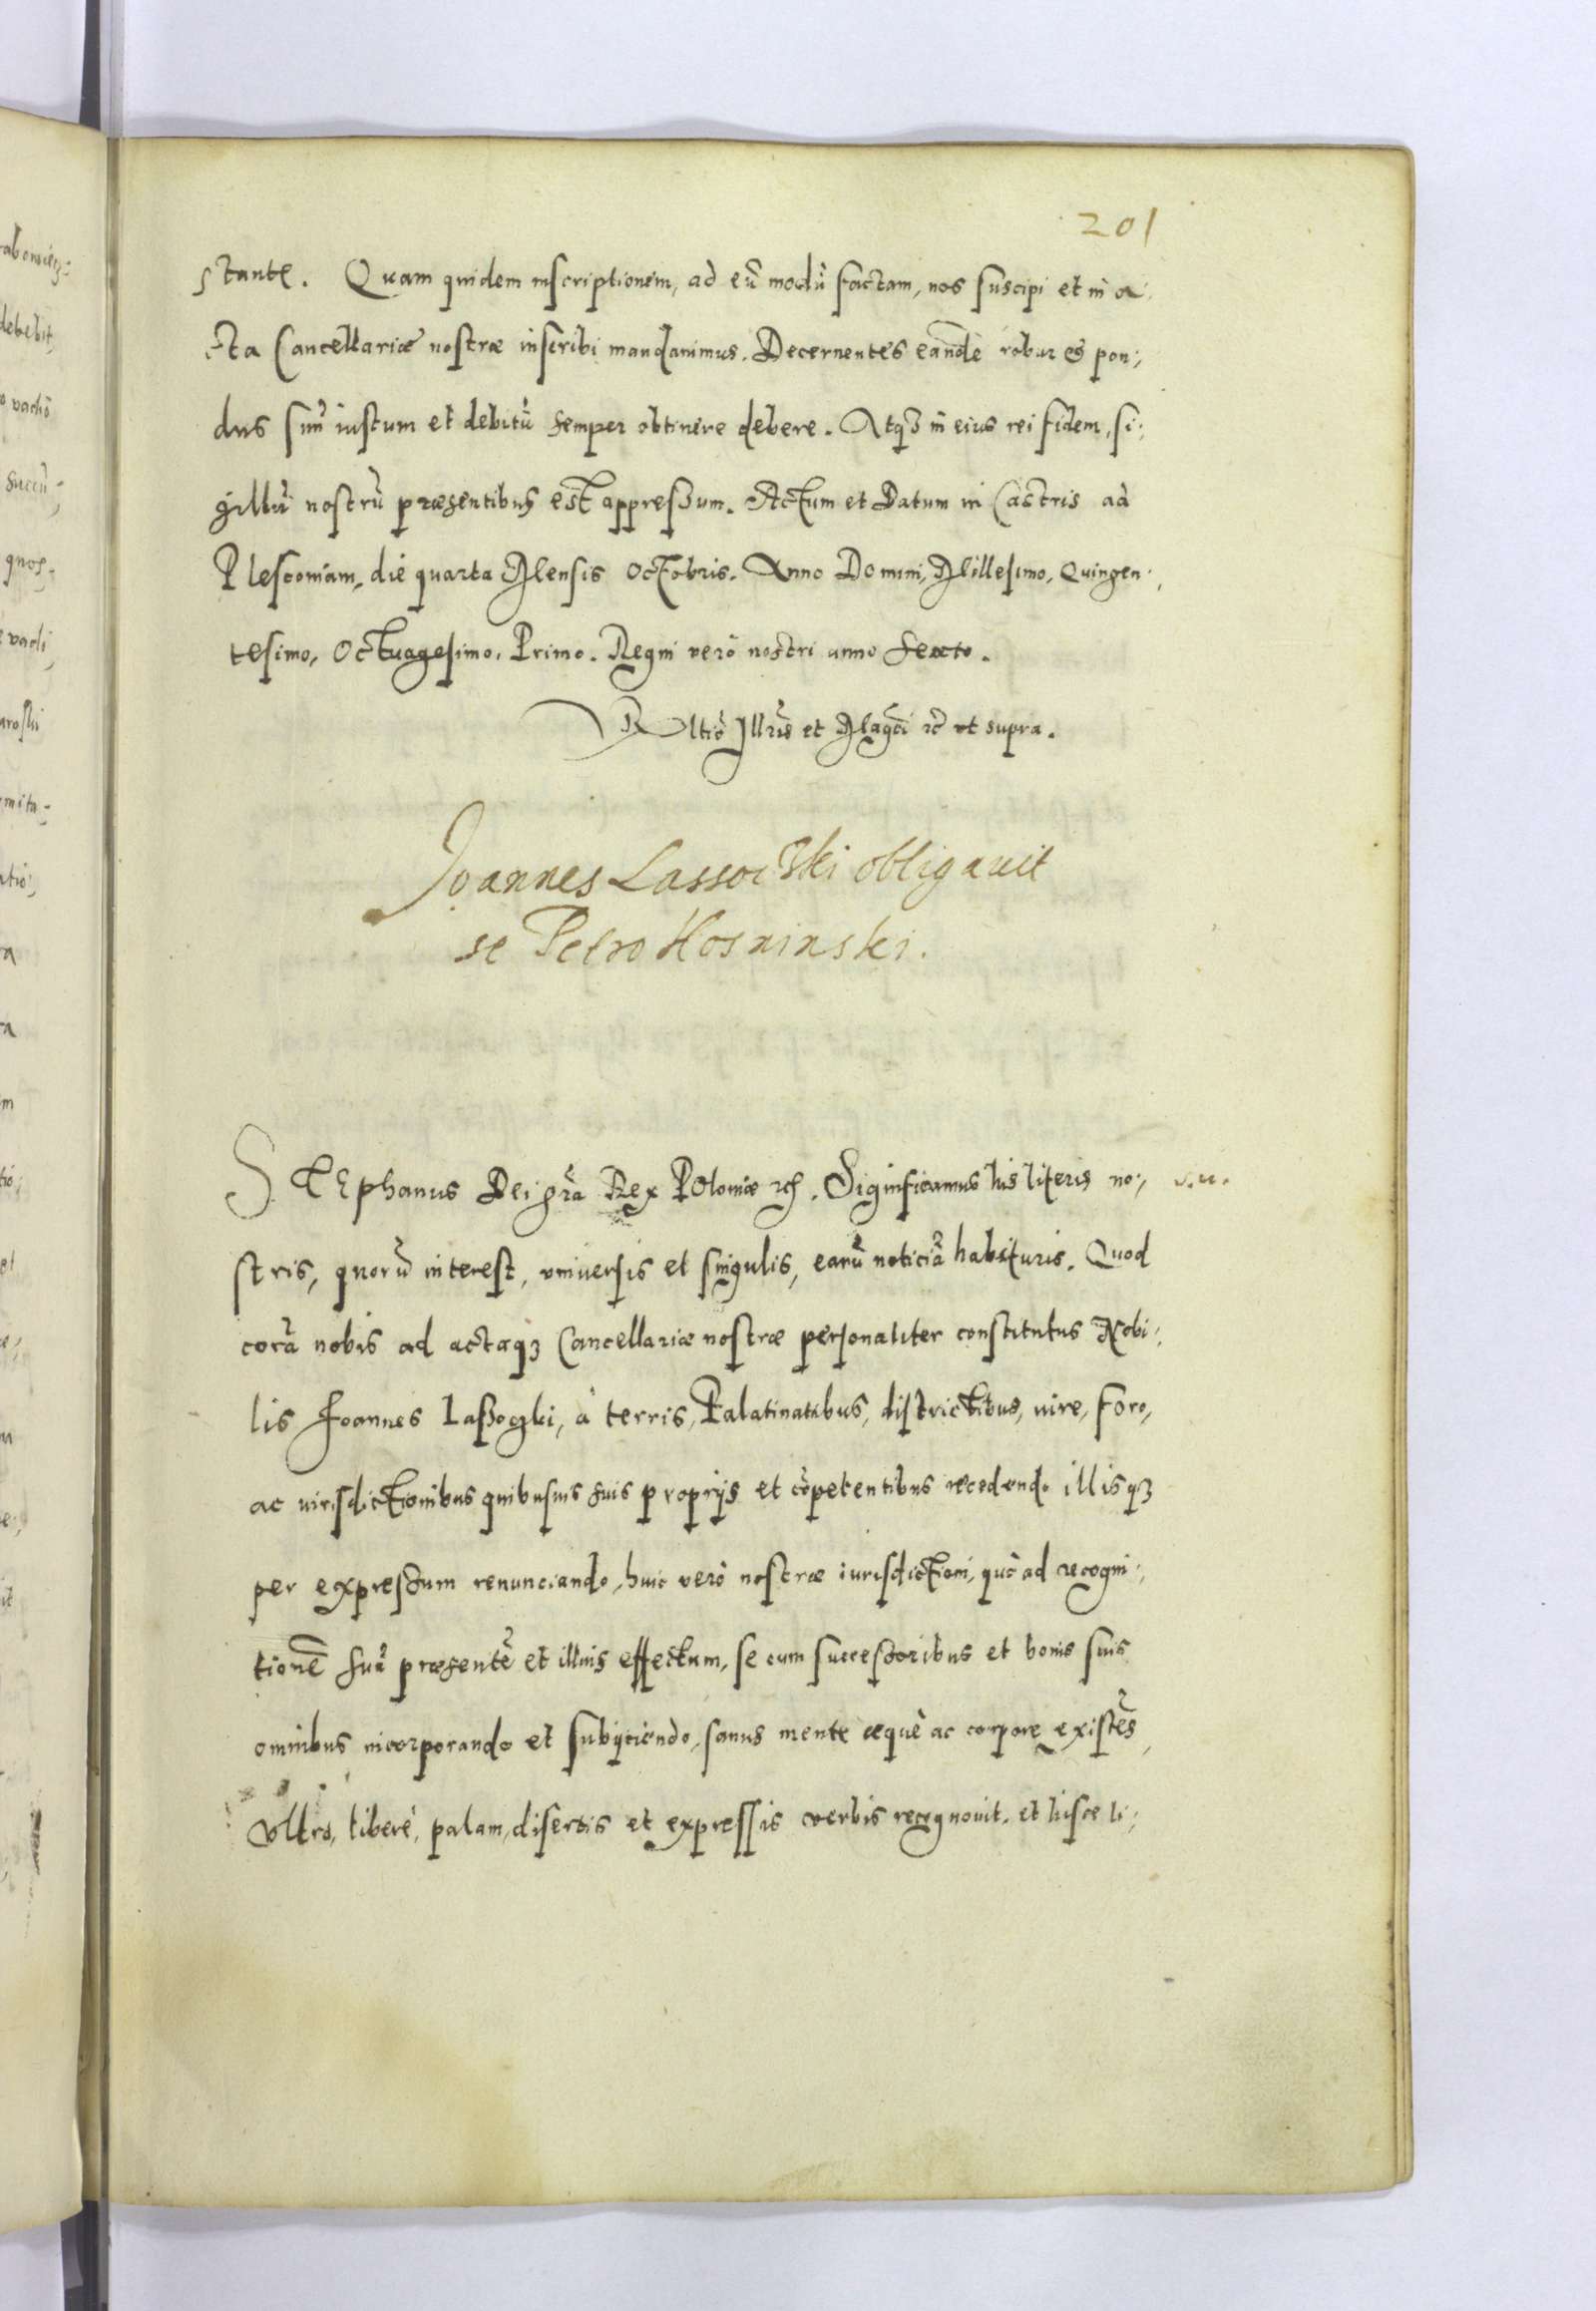 201
stante. Quam quidem inscriptionem, ad eũ modũ factam, nos suscipi et in a
cta Cancellariæ nostræ inscribi mandauimus. Decernentes eandẽ robur et pon:
dus suũ iustum et debitũ semper obtinere debere. Atqꝫ in eius rei fidem, si:
gillũ nostrũ præsentibus est appressum. Actum et Datum in Castris ad
Plescouiam, die quarta Mensis Octobris. Anno Domini, Millesimo, Quingen:
tesimo, Octuagesimo, Primo. Regni verò nostri anno sexto.
Rltiõ Illris et Magci ꝛc ut supra.
Joannes Lassocski obligauit
se Petro Kosninski.
Stephanus Dei gra Rex Poloniæ ꝛc. Significamus his literis no:
stris, quorũ interest, vniuersis et singulis, earũ noticiã habituris. Quod
corã nobis ad actaqꝫ Cancellariæ nostræ personaliter constitutus Nobi:
lis Joannes Laßoczki, à terris, Palatinatibus, districtibus, iure, foro,
ac iurisdictionibus quibusuis suis proprijs et cõpetentibus recedendo illisqꝫ
per expressum renunciando, huic verò nostræ iurisdictioni, quò ad recogni:
tionẽ suã præsentẽ et illius effectum, se cum successoribus et bonis suis
omnibus incorporando et subijciendo, sanus mente æquè ac corpore existẽs,
vltro, liberè, palam, disertis et expressis verbis recognouit. et hisce li: